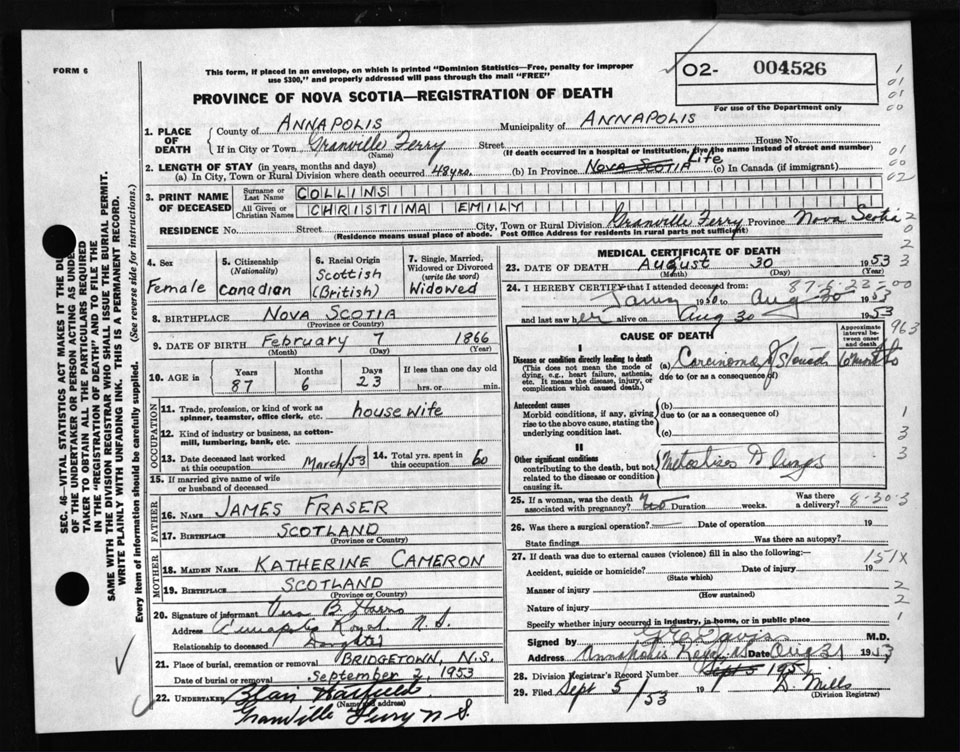 FORM 6
This form, if placed in an envelope, on which is printed "Dominion Statistics—Free, penalty for improper
use $300," and properly addressed will pass through the mail "FREE"
O2- 004526
For use of the Department only
PROVINCE OF NOVA SCOTIA—REGISTRATION OF DEATH
1. PLACE OF DEATH
County of ANNAPOLIS Municipality of ANNAPOLIS
If in City or Town Granville Ferry Street House No.
(Name) (If death occurred in a hospital or institution, give the name instead of street and number)
2. LENGTH OF STAY (in years, months and days)
(a) In City, Town or Rural Division where death occurred 48 yrs. (b) In Province NOVA SCOTIA Life (c) In Canada (if immigrant)
3. PRINT NAME OF DECEASED
Surname or Last Name COLLINS
All Given or Christian Names CHRISTINA EMILY
RESIDENCE No. Street City, Town or Rural Division Granville Ferry Province Nova Scotia
(Residence means usual place of abode. Post Office Address for residents in rural parts not sufficient)
SEC. 46—VITAL STATISTICS ACT MAKES IT THE DUTY
OF THE UNDERTAKER OR PERSON ACTING AS UNDER-
TAKER TO OBTAIN ALL THE PARTICULARS REQUIRED
IN THE "REGISTRATION OF DEATH" AND TO FILE THE
SAME WITH THE DIVISION REGISTRAR WHO SHALL ISSUE THE BURIAL PERMIT.
WRITE PLAINLY WITH UNFADING INK. THIS IS A PERMANENT RECORD.
Every item of information should be carefully supplied. (See reverse side for instructions.)
4. Sex
Female
5. Citizenship
(Nationality)
Canadian
6. Racial Origin
Scottish
(British)
7. Single, Married,
Widowed or Divorced
(write the word)
Widowed
8. BIRTHPLACE NOVA SCOTIA
(Province or Country)
9. DATE OF BIRTH February 7 1866
(Month) (Day) (Year)
10. AGE in
Years Months Days If less than one day
87 6 23 hrs. or min.
OCCUPATION
11. Trade, profession, or kind of work as
spinner, teamster, office clerk, etc. housewife
12. Kind of industry or business, as cotton-
mill, lumbering, bank, etc.
13. Date deceased last worked
at this occupation March/53
14. Total yrs. spent in
this occupation 60
15. If married give name of wife
or husband of deceased
FATHER
16. NAME JAMES FRASER
17. BIRTHPLACE SCOTLAND
(Province or Country)
MOTHER
18. MAIDEN NAME KATHERINE CAMERON
19. BIRTHPLACE SCOTLAND
(Province or Country)
20. Signature of informant Vera B.
Address Annapolis Royal N.S.
Relationship to deceased Daughter
21. Place of burial, cremation or removal BRIDGETOWN, N.S.
Date of burial or removal September 2, 1953
22. UNDERTAKER Blair
(Name and address)
Granville Ferry N S.
MEDICAL CERTIFICATE OF DEATH
23. DATE OF DEATH August 30 1953
(Month) (Day) (Year)
24. I HEREBY CERTIFY that I attended deceased from: 87-6-22-00
1950 to Aug 30 1953
and last saw her alive on Aug 30 1953
CAUSE OF DEATH
Approximate
interval be-
tween onset
and death
963
I
Disease or condition directly leading to death
(This does not mean the mode of
dying, e.g., heart failure, asthenia,
etc. It means the disease, injury, or
complication which caused death.)
(a) Carcinoma of Stomach
due to (or as a consequence of)
Antecedent causes
Morbid conditions, if any, giving
rise to the above cause, stating the
underlying condition last.
(b)
due to (or as a consequence of)
(c)
II
Other significant conditions
contributing to the death, but not
related to the disease or condition
causing it.
lungs
25. If a woman, was the death
associated with pregnancy? No Duration weeks. Was there
a delivery? 8-30-3
26. Was there a surgical operation? Date of operation 19
State findings Was there an autopsy?
27. If death was due to external causes (violence) fill in also the following:—
Accident, suicide or homicide? Date of injury 19
(State which)
151X
Manner of injury
(How sustained)
Nature of injury
Specify whether injury occurred in industry, in home, or in public place
Signed by Davis M.D.
Address Annapolis Royal NS Date Aug 31 1953
28. Division Registrar's Record Number Sept 5 195
29. Filed Sept 5/53 19 D. Mills
(Division Registrar)